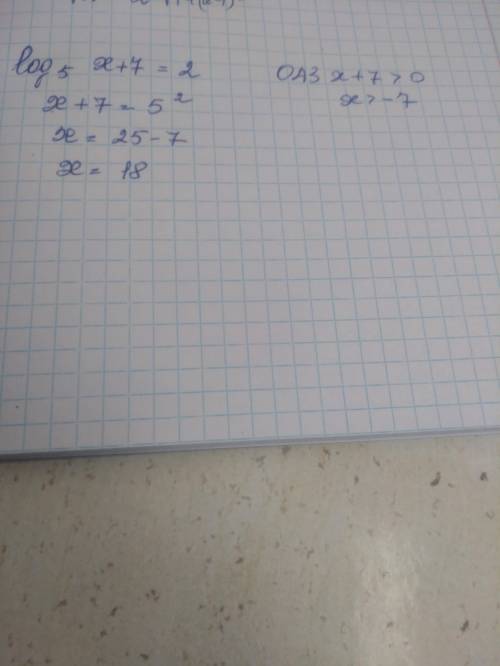 log₅ x+7 = 2
x+7 = 5²
x = 25-7
x = 18
ОДЗ x+7>0
x>-7